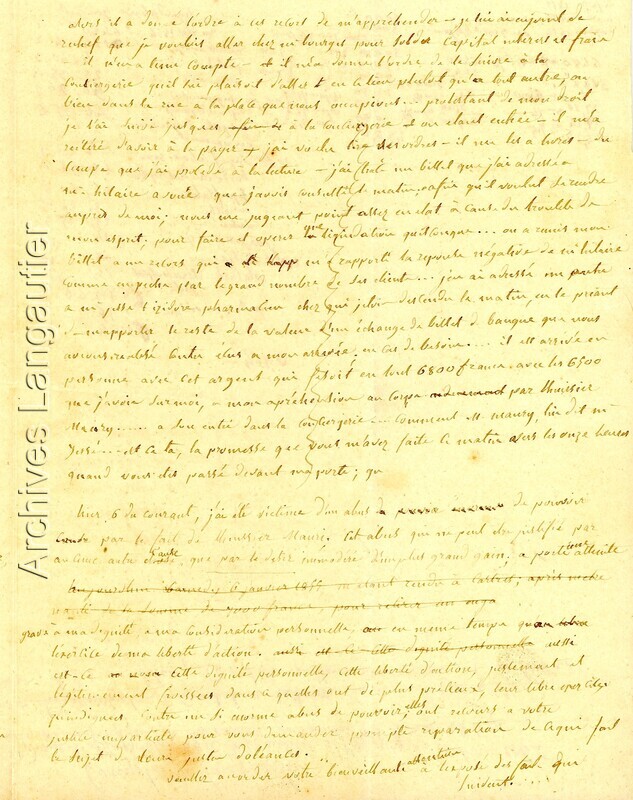 alors il a donné l'ordre à ces recors de m'appréhender — je lui ai enjoint de
relief que je voulois aller chez mr bourges pour solder Capital interest et frais
il m'en a tenu compte — et il m'a donné l'ordre de le suivre à la
Conciergerie qu'il lui plaisoit d'aller & en ce lieu plutot qu'en tout autre, ou
bien dans la rue à la place que nous occupions... protestant de mon droit
je l'ai suivi jusques à la Conciergerie & on etant entrée — il m'a
réitéré d'avoir à la payer — j'ai voulu lire ses ordres — il me les a
temps que j'ai procédé à la lecture — j'ai un billet que j'ai adressé a
mr hilaire avoué que j'avois consulté le matin, afin qu'il voulut se rendre
auprès de moi; nous me jugeant point assez en état à cause du trouble de
mon esprit, pour faire et operer une liquidation quelconque... on a remis mon
billet a un recors qui en rapporta la reponse négative de mr hilaire
comme empeché par le grand nombre de ses clients... j'en ai adressé un
a mr jesse izidore pharmacien chez qui j'etois descendu le matin, en le priant
d'm'apporter le reste de la valeur d'un échange de billet de banque que nous
avions réalisé Contre elus a mon arrivée, en cas de besoin.... il est arrivé en
personne avec cet argent qui fesoit en tout 6800 francs avec les 6500
que j'avois sur moi, — mon appréhension au corps par l'huissier
Maury..... a son entrée dans la Conciergerie — Comment M. Maury, lui dit mr
Jesse — est Ce la, la promesse que vous m'avez faite le matin vers les onze heures
quand vous etes passé devant ma porte; qu
6 du courant, j'ai été victime d'un abus de pouvoir
par le fait de Monsieur Mauri. Cet abus qui ne peut etre justifié par
aucune autre cause, que par le désir immodéré d'un plus grand gain, a porté atteinte
Aujourdhui Samedi 6 janvier 1855 m'etant rendu a Castres, après
de la somme de francs, pour retirer
grave à ma dignité a ma Considération personnelle, en même temps qu'
l'exercice de ma liberté d'action. aussi est-ce cette dignité personnelle aussi
est-ce Cette dignité personnelle, Cette liberté d'action, justement et
légitimement froissées dans ce quelles ont de plus précieux, leur libre exercice,
qu'indignées Contre un si enorme abus de pouvoir, elles ont recours a votre
justice impartiale pour vous demander prompte réparation de Ce qui fait
le sujet de leurs justes doléances.
veuillez accorder votre bienveillante attention à l'exposé des faits qui
suivent.....
Archives Langautier